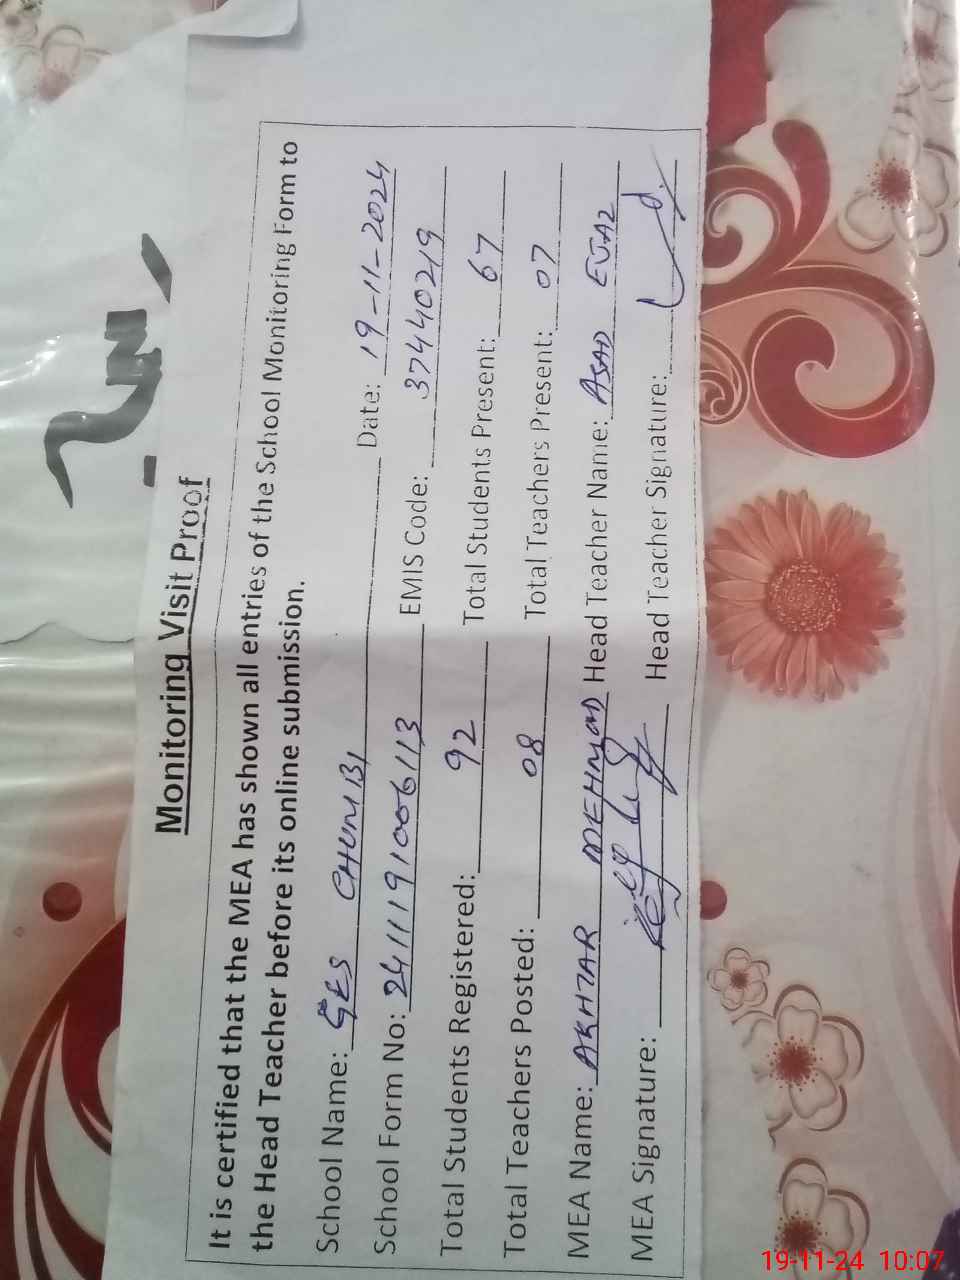 Monitoring Visit Proof
It is certified that the MEA has shown all entries of the School Monitoring Form to
the Head Teacher before its online submission.
School Name: GES CHUMBI Date: 19-11-2024
School Form No: 2411191006113 EMIS Code: 37440219
Total Students Registered: 92 Total Students Present: 67
Total Teachers Posted: 08 Total Teachers Present: 07
MEA Name: AKHTAR MEHMOOD Head Teacher Name: ASAD EJAZ
MEA Signature: Head Teacher Signature:
19-11-24 10:07